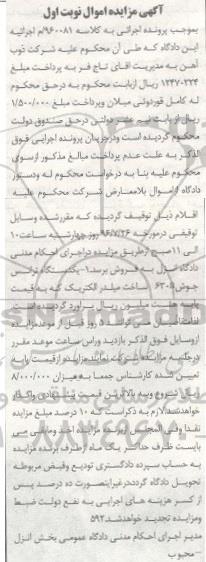 آگهی مزایده اموال نوبت اول
بموجب پرونده اجرائی به کلاسه ۹۶۰۰۸۱/م اجرائیه
این دادگاه که طی آن محکوم علیه شرکت ذوب
آهن به مدیریت آقای تاج فر به پرداخت مبلغ
۱۲۴۷۰۳۳۴ ریال ازبابت محکوم به درحق محکوم
له کامل قوردوئی میلان وپرداخت مبلغ ۱/۵۰۰/۰۰۰
ریال از بابت نیم عشر دولتی درحق صندوق دولت
محکوم گردیده است ودرجریان پرونده اجرایی فوق
الذکر به علت عدم پرداخت مبالغ مذکور ازسوی
محکوم علیه بنا به درخواست محکوم له ودستور
دادگاه ازاموال بلامعارض شرکت محکوم علیه
اقلام ذیل توقیف گردیده که مقررشده وسایل
توقیفی درمورخه ۹۶/۷/۲۶ روز چهارشنبه ساعت ۱۰
الی ۱۱ صبح ازطریق مزایده دراجرای احکام مدنی
دادگاه انزل به فروش برسد ۱-یکدستگاه ترانس
جوش ۶۳۰۵ ساخت میلدر الکتریک که به قیمت
پایه هشت ملیون ریال برآورد گردیده است
لذا متقاضیان می توانند ۵ روز قبل از موعد مزایده
ازوسایل فوق الذکر بازدید وراس ساعت موعد مقرر
درجلسه مزایده شرکت نمایند مزایده از قیمت پایه
تعیین شده کارشناس جمعا به میزان ۸/۰۰۰/۰۰۰
ریال شروع وبه بالاترین قیمت پیشنهادی واگذار
خواهدشد لازم به ذکراست که ۱۰ درصد مبلغ مزایده
نقدا وفی المجلس ازبرنده مزایده اخذ ومابقی می
بایست ظرف حداکثر یک ماه ازطرف برنده مزایده
به حساب سپرده دادگستری تودیع وفیش مربوطه
تحویل دادگاه گردددرغیراینصورت ده درصد پس
از کسر هزینه های اجرایی به نفع دولت ضبط
ومزایده تجدید خواهدشد ۵۹۲
مدیر اجرای احکام مدنی دادگاه عمومی بخش انزل
–محبوب